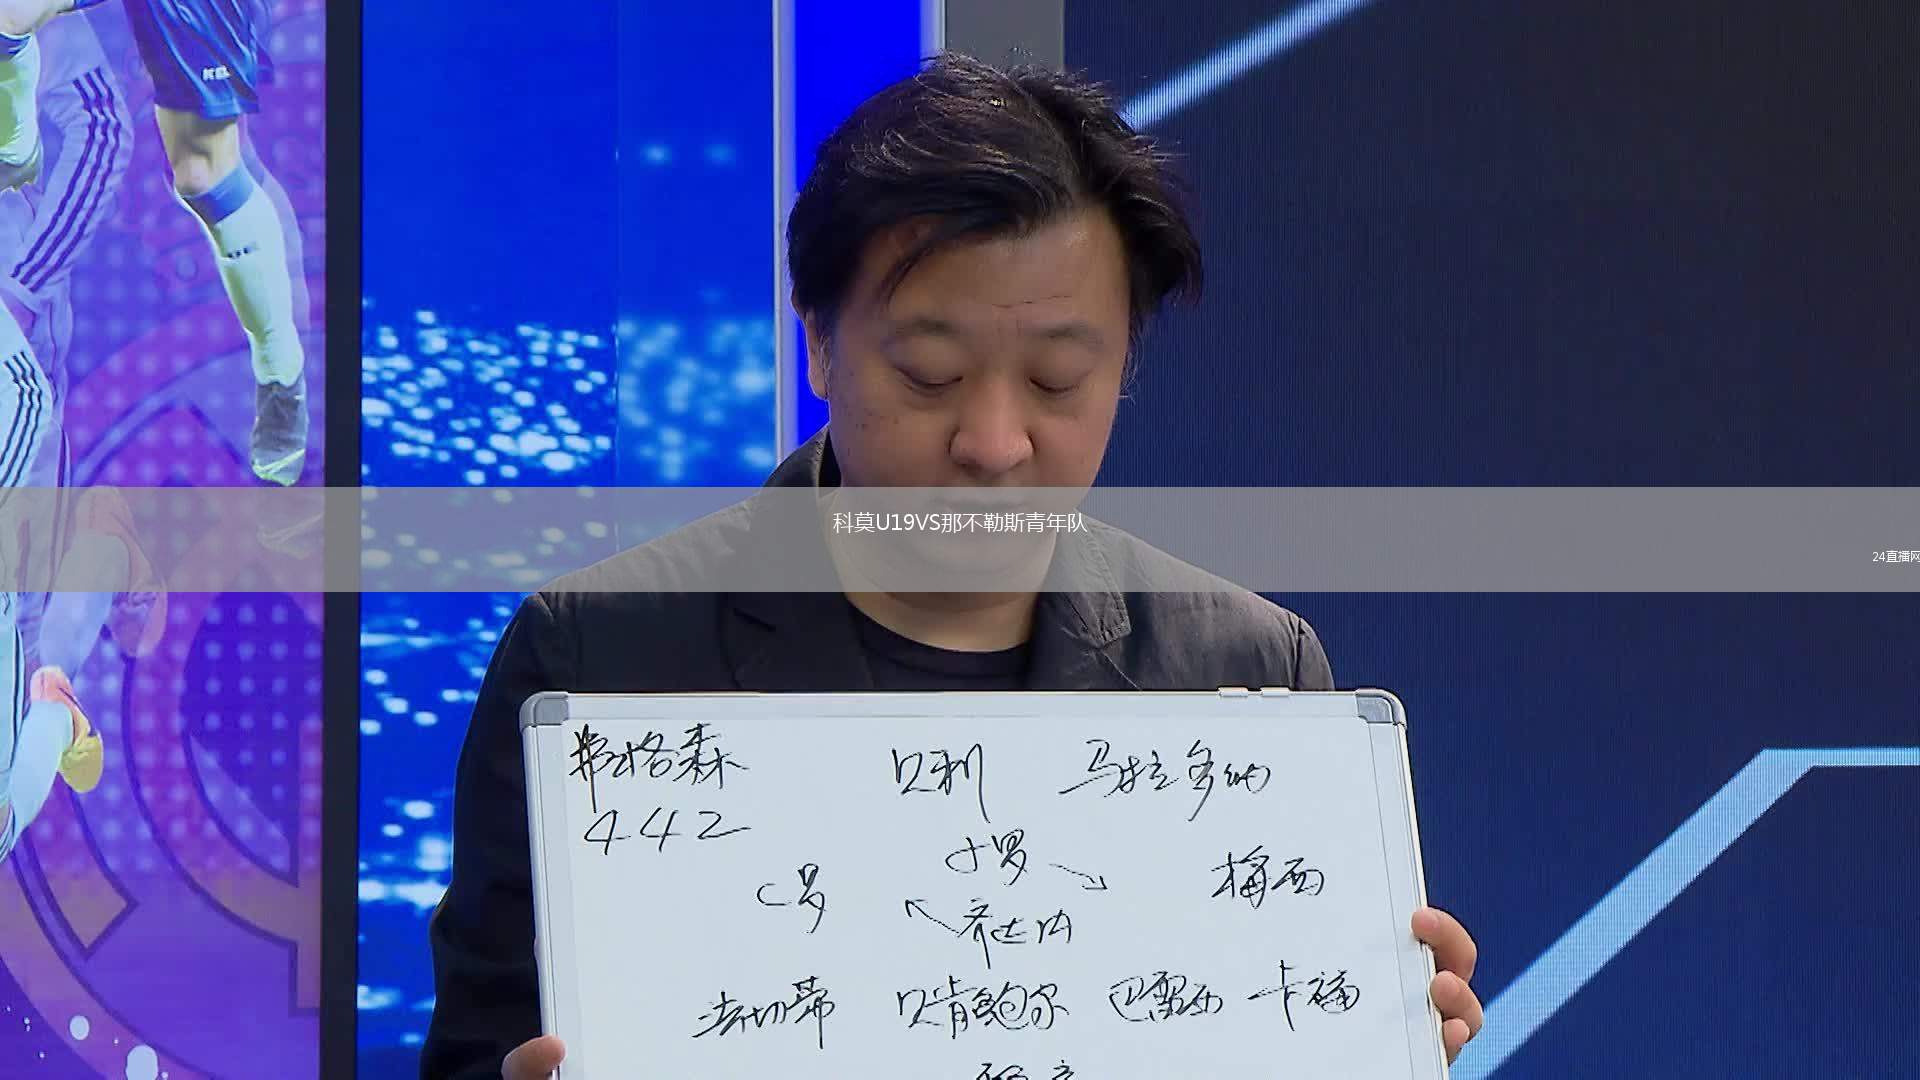 科莫U19VS那不勒斯青年队
24直播网
弗格森 贝利 马拉多纳
442
小罗
C罗 梅西
齐达内
法切蒂 贝肯鲍尔 巴雷西 卡福